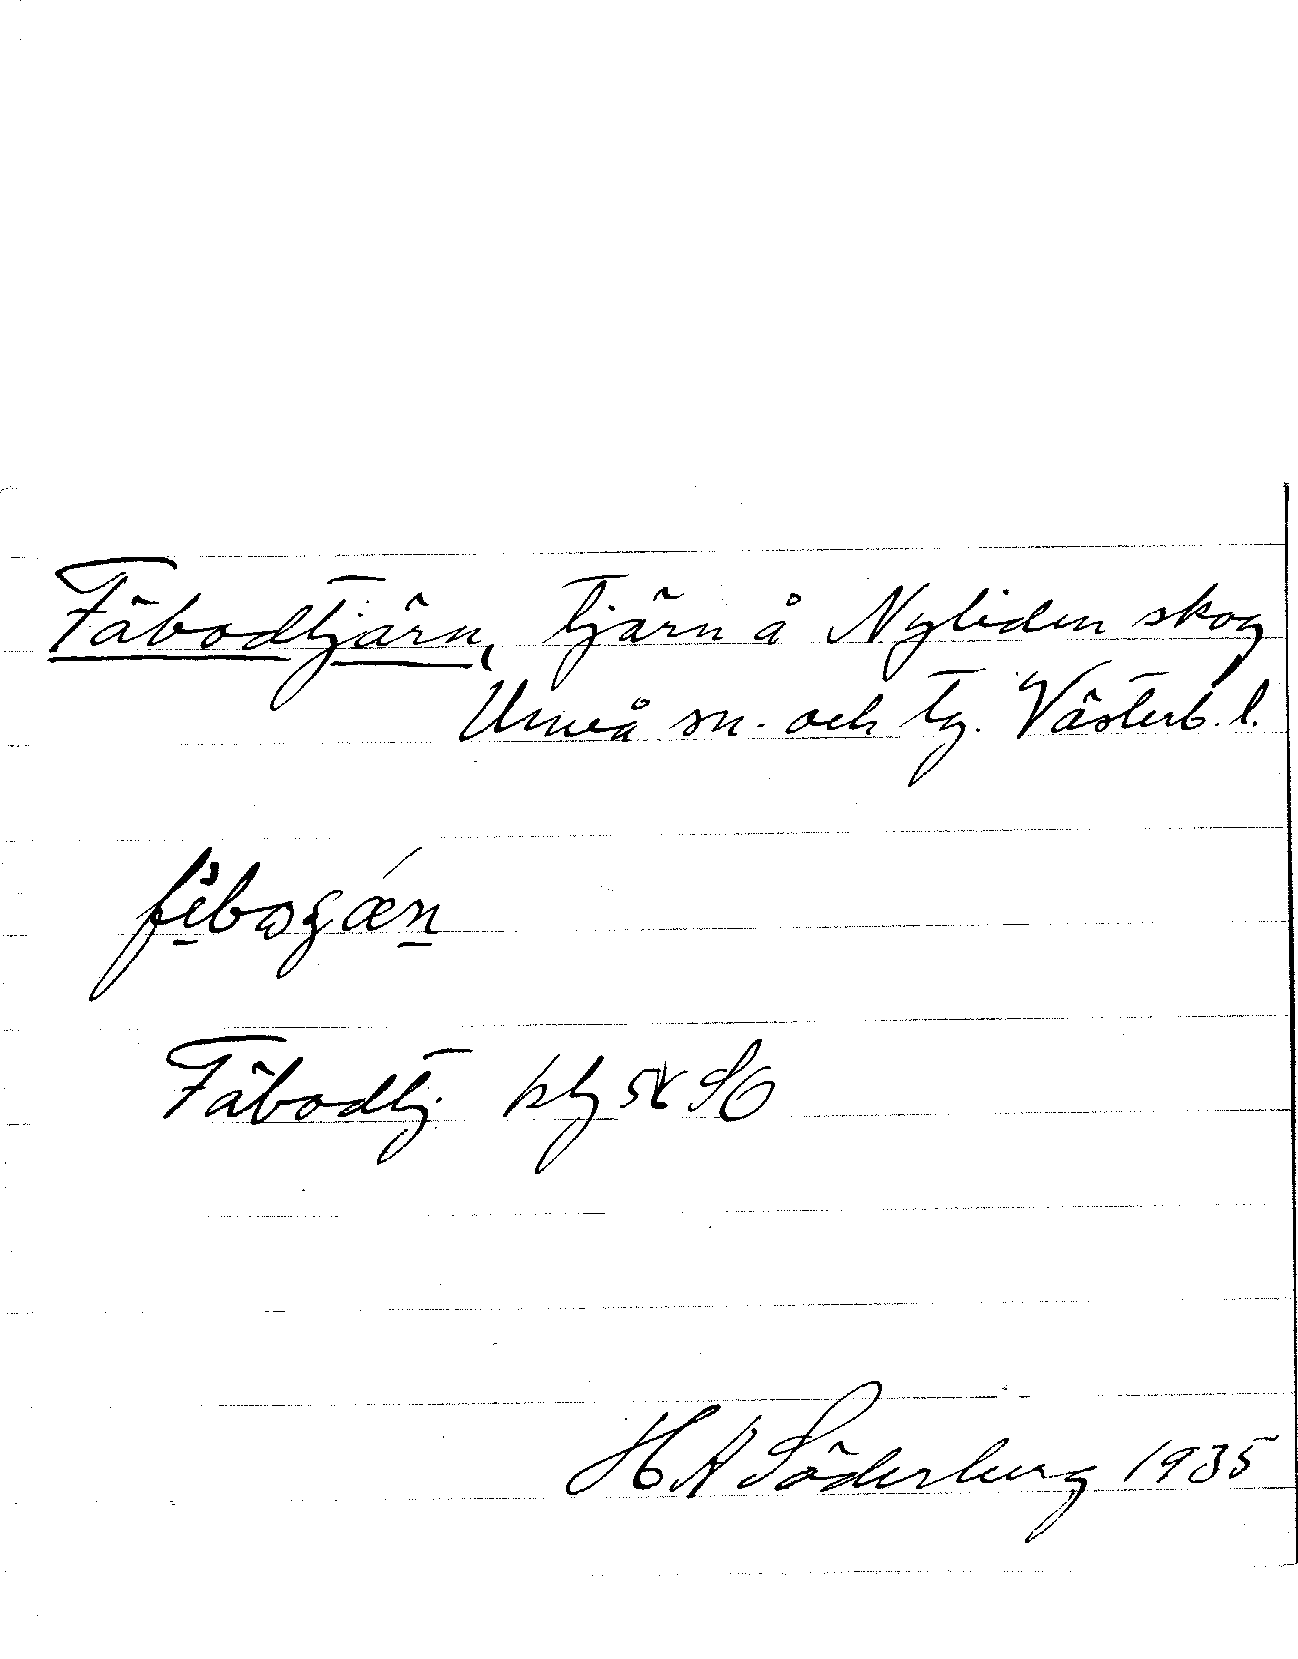 Fäbodtjärn, tjärn å Nyliden skog
Umeå sn. och tg. Västerb. l.
Fäbodtj. blg 58 SO
H A Söderberg 1935